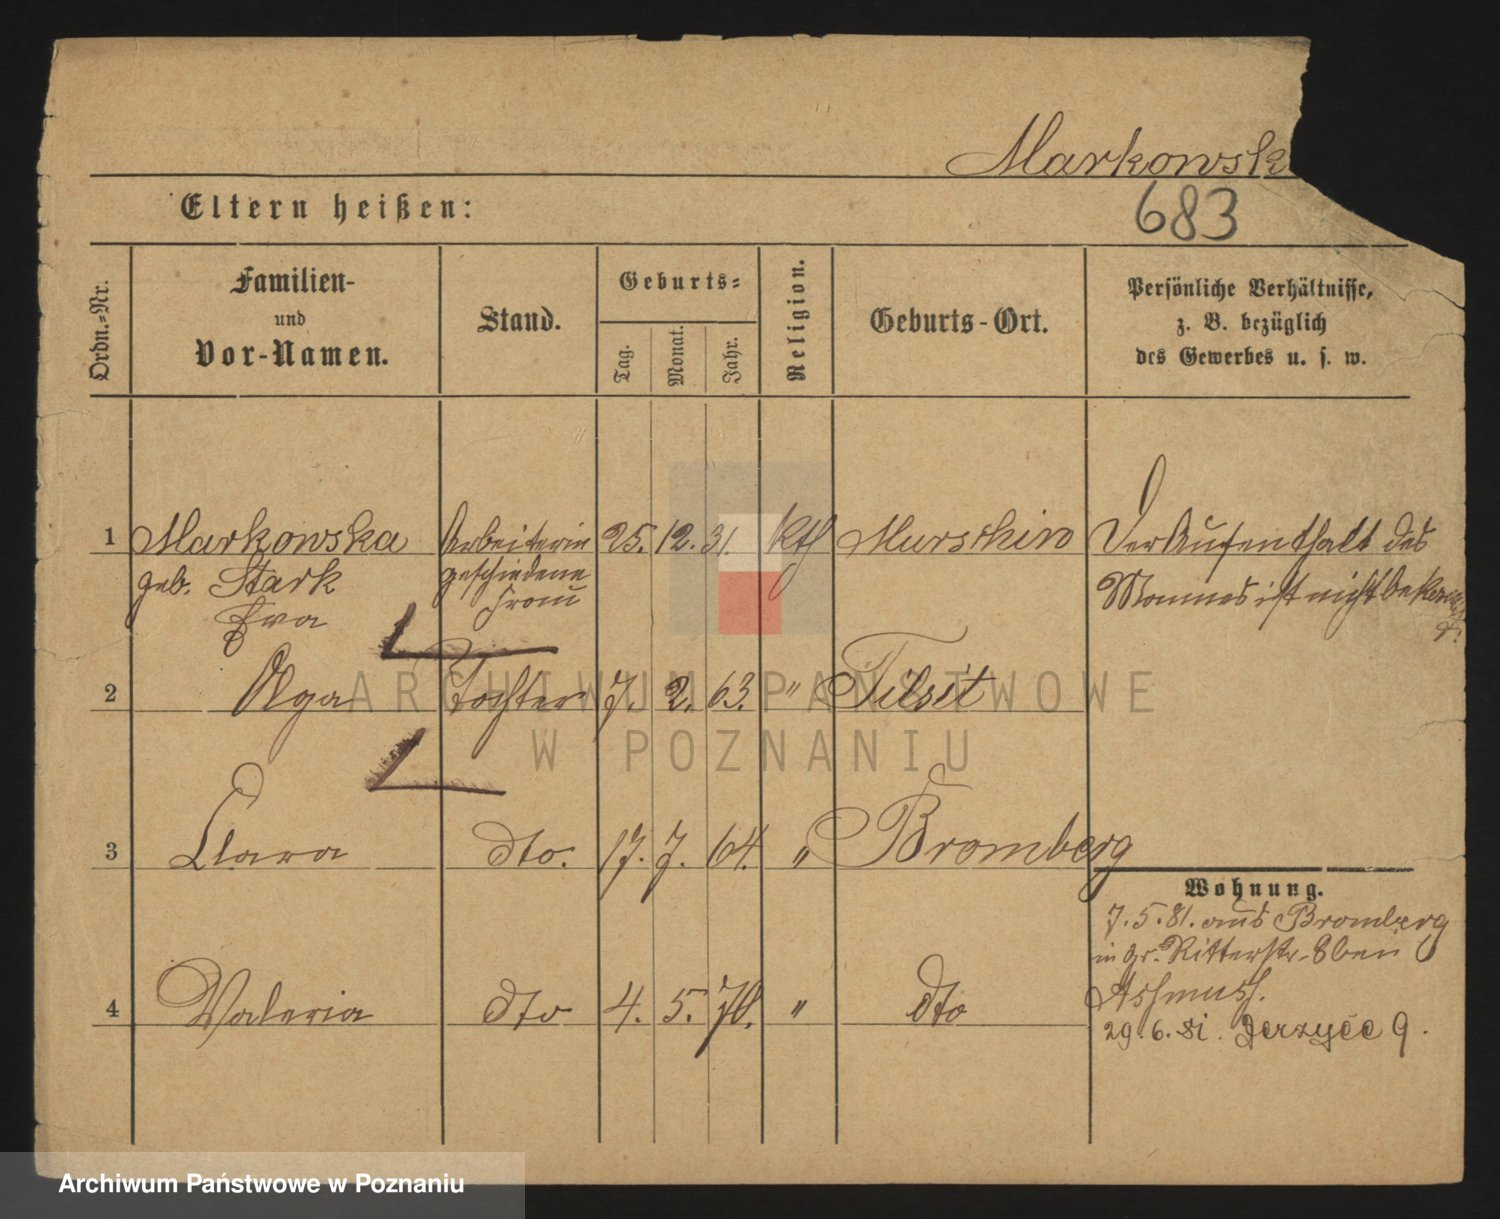 Markowsk
683
Eltern heißen:
Ordn.=Nr.
Familien-
und
Vor-Namen.
Stand.
Geburts=
Tag.
Monat.
Jahr.
Religion.
Geburts-Ort.
Persönliche Verhältnisse,
z. B. bezüglich
des Gewerbes u. s. w.
1 Markowska Arbeiterin 25. 12. 31. kth Murskin Der Aufenthalt des
geb. Stark geschiedene Mannes ist nicht bekannt
Eva Frau
2 Olga Tochter 7. 2. 63. " Tilsit
ARCHIWUM PAŃSTWOWE
W POZNANIU
3 Clara dto. 17. 7. 64. " Bromberg
Wohnung.
7. 5. 81. aus Bromberg
in gr. Ritterstr. 8 bei
Assmuss.
4 Valeria dto 4. 5. 70. " dto
29. 6. 81. Jerzyce 9.
Archiwum Państwowe w Poznaniu